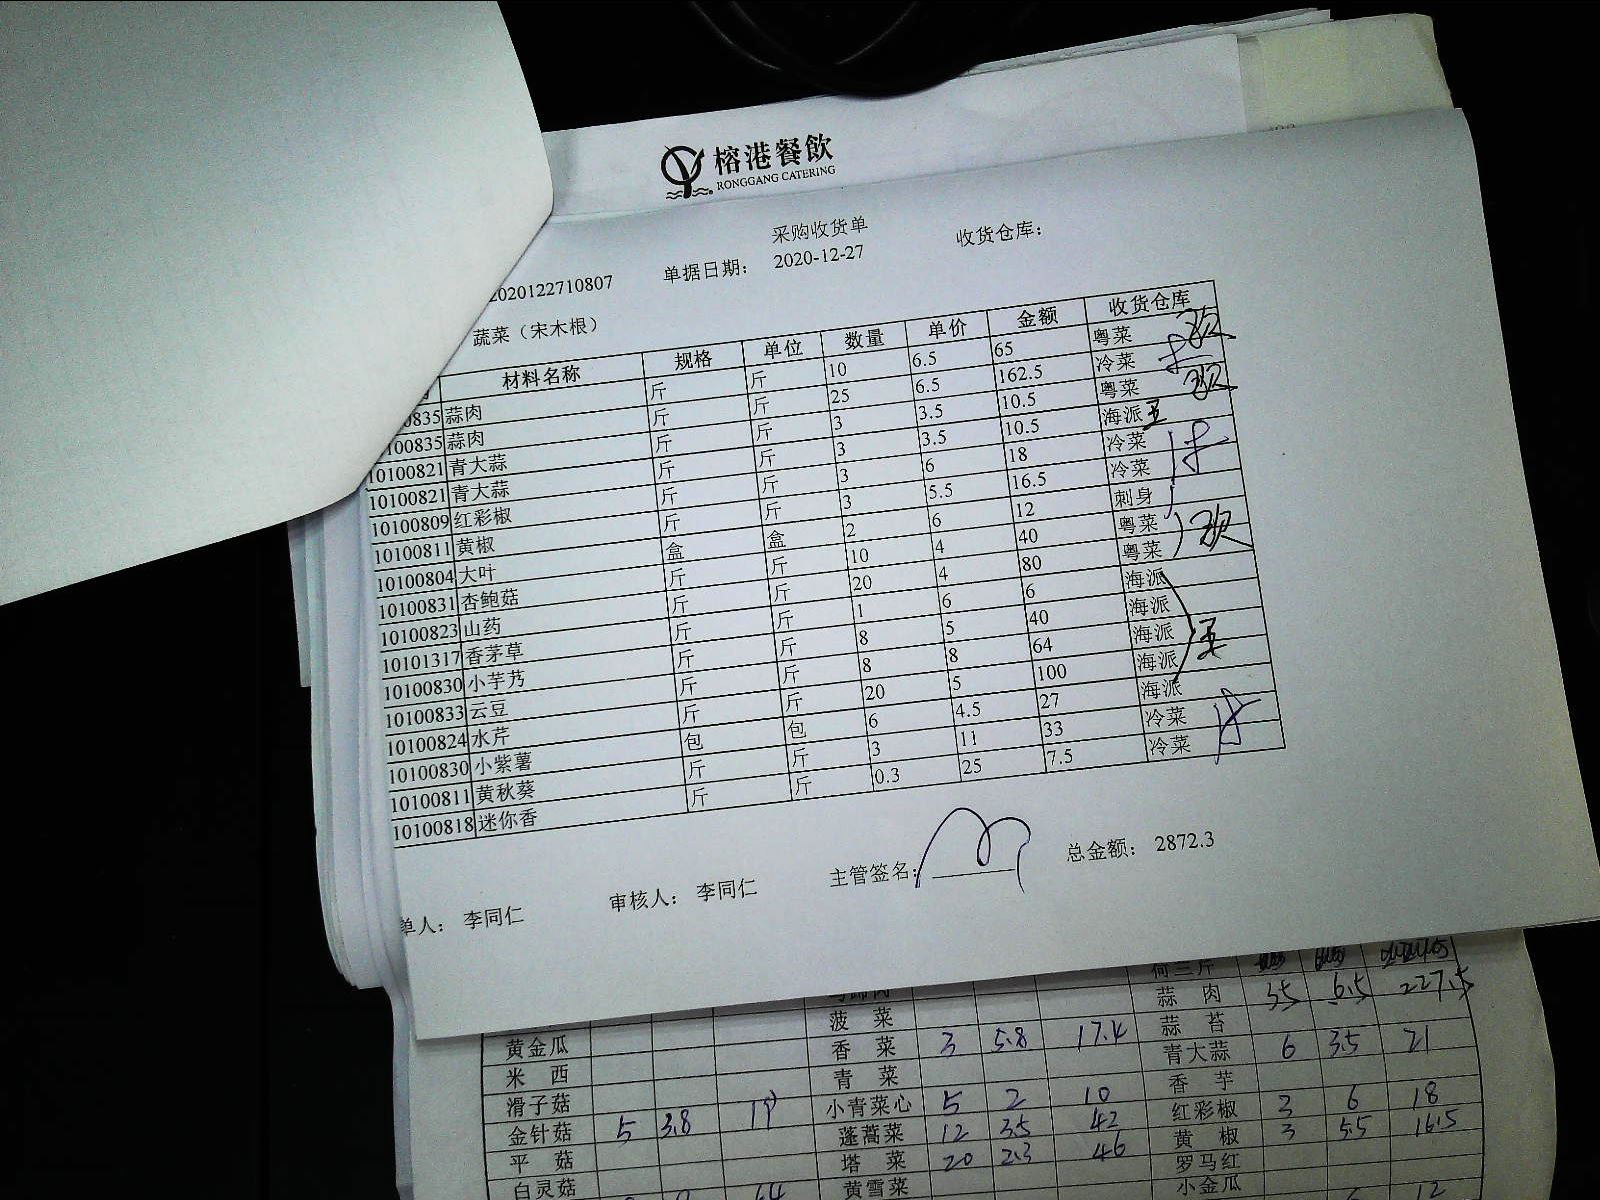 榕港餐飲
RONGGANG CATERING
采购收货单
2020122710807 单据日期： 2020-12-27 收货仓库：
蔬菜（宋木根）
材料名称 规格 单位 数量 单价 金额 收货仓库
0835 蒜肉 斤 斤 10 6.5 65 粤菜
100835 蒜肉 斤 斤 25 6.5 162.5 冷菜
10100821 青大蒜 斤 斤 3 3.5 10.5 粤菜
10100821 青大蒜 斤 斤 3 3.5 10.5 海派 王
10100809 红彩椒 斤 斤 3 6 18 冷菜
10100811 黄椒 斤 斤 3 5.5 16.5 冷菜
10100804 大叶 盒 盒 2 6 12 刺身
10100831 杏鲍菇 斤 斤 10 4 40 粤菜
10100823 山药 斤 斤 20 4 80 粤菜
10101317 香茅草 斤 斤 1 6 6 海派
10100830 小芋艿 斤 斤 8 5 40 海派
10100833 云豆 斤 斤 8 8 64 海派 王
10100824 水芹 斤 斤 20 5 100 海派
10100830 小紫薯 包 包 6 4.5 27 海派
10100811 黄秋葵 斤 斤 3 11 33 冷菜
10100818 迷你香 斤 斤 0.3 25 7.5 冷菜
单人： 李同仁 审核人： 李同仁 主管签名： 总金额： 2872.3
蒜肉 35 6.5 227.5
菠菜 蒜苔
黄金瓜 香菜 3 5.8 17.4 青大蒜 6 3.5 21
米西 青菜 香芋
滑子菇 小青菜心 5 2 10 红彩椒 3 6 18
金针菇 5 3.8 19 蓬蒿菜 12 3.5 42 黄椒 3 5.5 16.5
平菇 塔菜 20 2.3 46 罗马红
白灵菇 64 黄雪菜 小金瓜 12